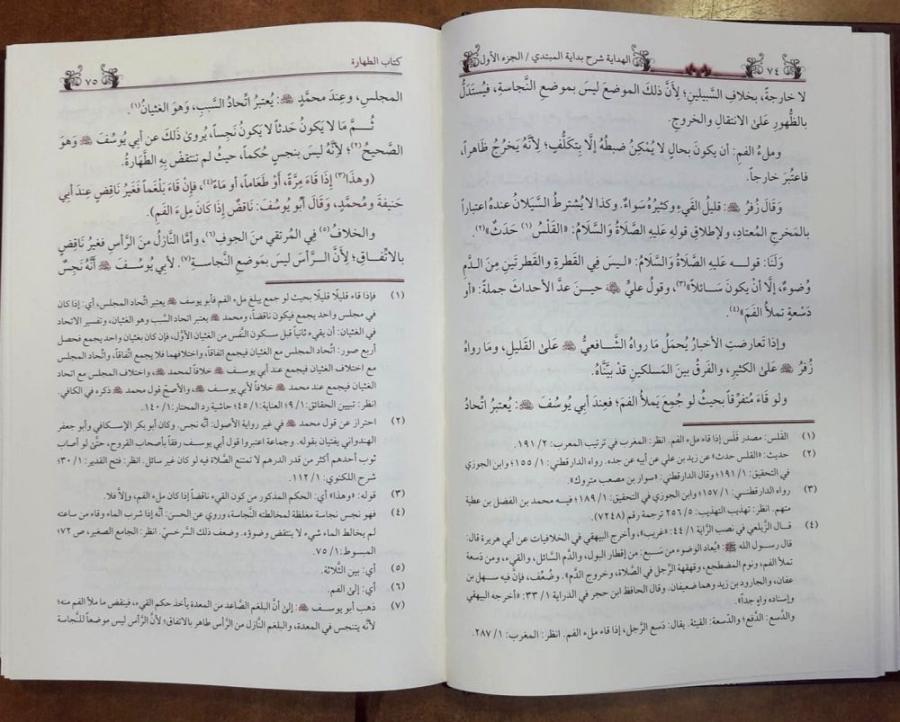 الهداية شرح بداية المبتدي / الجزء الأول
٧٤
لا خارجةً، بخلافِ السَّبيلينِ؛ لِأَنَّ ذلكَ الموضعَ ليسَ بموضعِ النَّجاسةِ، فيُستَدَلُّ
بالظُّهورِ عَلىٰ الانتقالِ والخروجِ.
وملءُ الفمِ: أن يكونَ بحالٍ لا يُمْكِنُ ضبطُهُ إلَّا بتكلُّفٍ؛ لِأنَّهُ يَخرُجُ ظاهراً،
فاعتُبرَ خارجاً.
وَقَالَ زُفَرُ: قليلُ القَيءِ وكثيرُهُ سَواءٌ. وكذا لا يُشترطُ السَّيَلانُ عندهُ اعتباراً
بالمَخرجِ المُعتادِ، ولإطلاقِ قولِهِ عَلَيهِ الصَّلاةُ والسَّلامُ: «القَلْسُ(١) حَدَثٌ»(٢).
وَلَنَا: قولـه عَليهِ الصَّلاةُ والسَّلامُ: «ليـسَ فِي القَطرةِ والقَطرتَينِ مِنَ الدَّمِ
وُضوءٌ، إلَّا أنْ يكونَ سَـائلاً»(٣)، وقول عليٍّ حيـنَ عدَّ الأحداثَ جملةً: «أو
دَسْعةٍ تملأُ الفَمَ»(٤).
وإذا تعارضتِ الأخبارُ يُحمَلُ مَا رواهُ الشَّافعيُّ عَلىٰ القَليلِ، ومَا رواهُ
زُفَرُ عَلىٰ الكثيرِ، والفَرقُ بينَ المَسلكينِ قدْ بيَّنَّاهُ.
ولو قَاءَ مُتفرِّقاً بحيثُ لو جُمِعَ يَملأُ الفمَ؛ فعِندَ أبي يُوسُفَ: يُعتبرُ اتِّحادُ
(١) القَلس: مصدر قَلَس إذا قاء ملء الفم. انظر: المغرب في ترتيب المعرب: ٢/ ١٩١.
(٢) حديث: «القلس حدث» عن زيد بن علي عن أبيه عن جده. رواه الدارقطني: ١/ ١٥٥؛ وابن الجوزي
في التحقيق: ١/ ١٩١؛ وقال الدارقطني: «سوار بن مصعب متروك».
(٣) رواه الدارقطنـي: ١/ ١٥٧؛ وابن الجوزي في التحقيق: ١/ ١٨٩؛ فيـه محمد بن الفضل بن عطية
متهم. انظر: تهذيب التهذيب: ٥/ ٢٥٦ ترجمة رقم (٧٢٤٨).
(٤) قـال الزَّيلعي في نصب الرَّاية ١/ ٤٤: «غريب»، وأخرج البيهقي في الخلافيات عن أبي هريرة قال:
قال رسول الله ﷺ: «يُعاد الوضوء من سَبع: من إقطار البول، والدَّم السَّائل، والقيء، ومن دَسعة
تملأ الفم، ونوم المضطجع، وقهقهة الرَّجل في الصَّلاة، وخروج الدَّم». وضُعِّف، فإنَّ فيه سـهل بن
عفان، والجارود بن زيد وهما ضعيفان. وقال الحافظ ابن حجر في الدراية ١/ ٣٣: «أخرجه البيهقي
وإسناده واهٍ جداً».
والدَّسع: الدَّفع؛ والدَّسعة: القيئة. يقال: دَسع الرَّجل، إذا قاء ملء الفم. انظر: المغرب: ١/ ٢٨٧.
كتاب الطهارة
٧٥
المَجلسِ، وعِندَ محمَّدٍ: يُعتبرُ اتِّحادُ السَّببِ، وَهوَ الغَثيانُ(١).
ثُـمَّ مَا لا يَكونُ حَدثاً لا يَكونُ نَجِساً، يُروىٰ ذَلكَ عن أبي يوسُفَ وَهوَ
الصَّحيحُ(٢)؛ لِأَنَّهُ ليسَ بنجسٍ حُكماً، حيثُ لم تنتقضْ بهِ الطَّهارةُ.
(وهذَا(٣) إذَا قَاءَ مِرَّةً، أَوْ طَعَاماً، أو مَاءً(٤)، فَإِنْ قَاءَ بَلْغَماً فَغَيرُ نَاقِضٍ عِندَ أبي
حَنيفةَ ومُحمَّدٍ، وَقَالَ أَبُو يُوسُفَ: نَاقضٌ إذَا كَانَ مِلءَ الفَمِ).
والخلافُ(٥) فِي المُرتقي منَ الجوفِ(٦)، وأمَّا النَّازلُ مِنَ الرَّأسِ فغيرُ نَاقِضٍ
بالاتِّفاقِ؛ لِأَنَّ الـرَّأسَ ليسَ بمَوضعِ النَّجاسةِ(٧). لأبي يُوسُـفَ أَنَّهُ نَجسٌ
(١) فإذا قاء قليلًا قليلًا بحيث لو جمع يبلغ ملء الفم فأبو يوسف يعتبر اتِّحاد المجلس، أي: إذا كان
في مجلس واحد يجمع فيكون ناقضاً، ومحمد يعتبر اتحاد السَّبب وهو الغثيان، وتفسير الاتحاد
في الغثيان: أن يقيء ثانياً قبل سـكون النَّفس من الغثيان الأوَّل، فإن كان بغثيان واحد يجمع فحصل
أربع صور: اتِّحاد المجلس مع الغثيان فيجمع اتفاقاً، واختلافهما فلا يجمع اتِّفاقاً، واتِّحاد المجلس
مع اختلاف الغثيان فيجمع عند أبي يوسـف خلافاً لمحمد، واختلاف المجلس مع اتحاد
الغثيان فيجمع عند محمد خلافاً لأبي يوسـف، والأصحّ قول محمد ذكره في الكافي.
انظر: تبيين الحقائق: ١/ ٩؛ العناية: ١/ ٤٥؛ حاشية رد المحتار: ١/ ١٤٠.
(٢) احتراز عن قول محمد في غير رواية الأصول: أنَّه نجس. وكان أبو بكر الإسكافي وأبو جعفر
الهندواني يفتيان بقوله. وجماعة اعتبروا قول أبي يوسف رفقاً بأصحاب القروح، حتَّىٰ لو أصاب
ثوب أحدهم أكثر من قدر الدرهم لا تمتنع الصَّلاة فيه لو كان غير سائل. انظر: فتح القدير: ١/ ٣٠؛
شرح اللكنوي: ١/ ١١٢.
(٣) قوله: «وهذا» أي: الحكم المذكور من كون القيء ناقضاً إذا كان ملء الفم، وإلَّا فلا.
(٤) فهو نجس نجاسة مغلظة لمخالطته النَّجاسة، وروي عن الحسن: أنَّه إذا شرب الماء وقاء من ساعته
لم يخالط الماء شيء لا ينتقض وضوؤه. وضعف ذلك السَّرخسيّ. انظر: الجامع الصغير، ص ٧٢؛
المبسوط: ١/ ٧٥.
(٥) أي: بين الثَّلاثة.
(٦) أي: إلىٰ الفم.
(٧) ذهب أبو يوسف: إلىٰ أنَّ البلغم الصَّاعد من المعدة يأخذ حكم القيء، فينقض ما ملأ الفم منه؛
لأنَّه يتنجس في المعدة، والبلغم النَّازل من الرَّأس طاهر بالاتفاق؛ لأنَّ الرَّأس ليس موضعاً للنَّجاسة